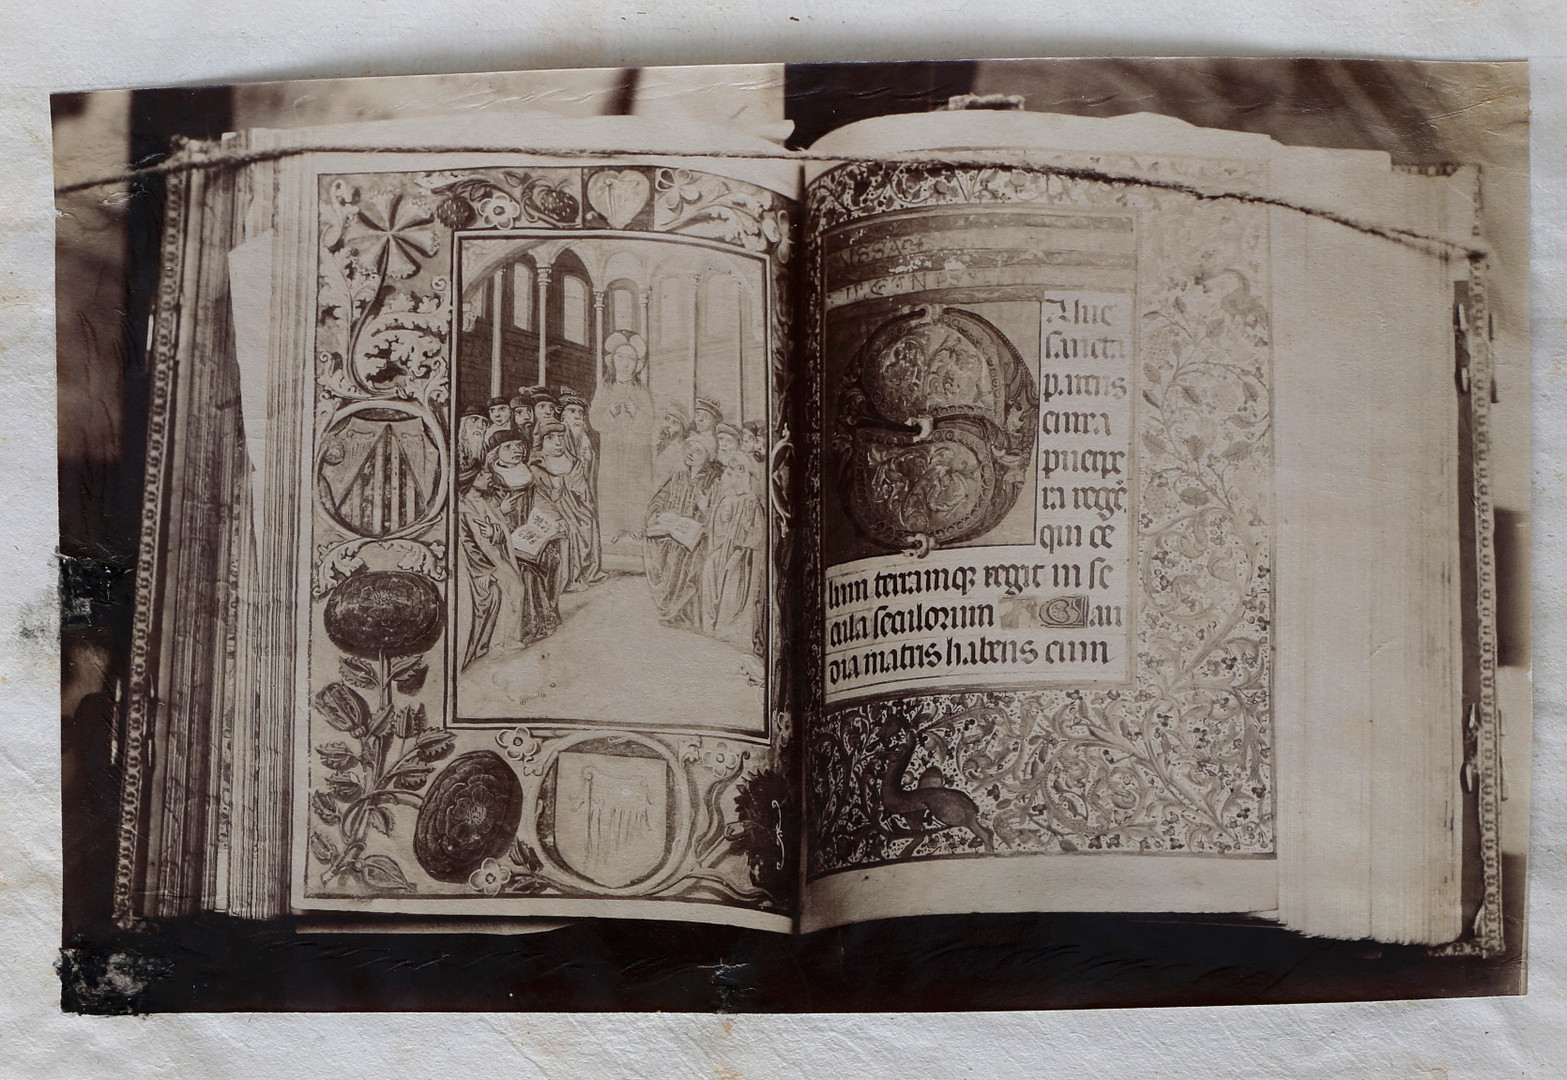 Alue
sancta
parens
enixa
puerpe
ra regē.
qui ce
lum terramq; regit in se
cula seculorum au
dia matris habens cum